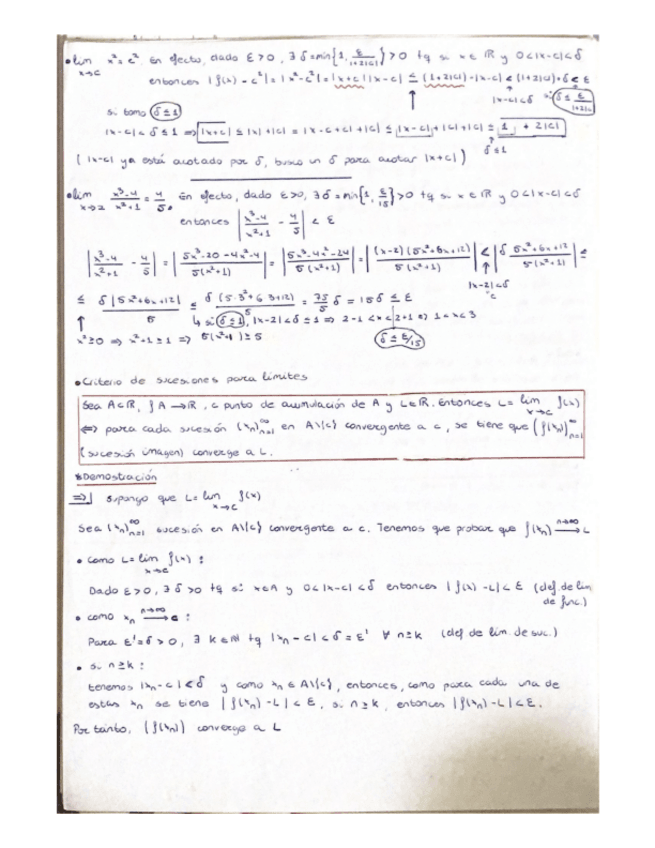 • lim x→c x² = c². En efecto, dado ε>0, ∃ δ=min{1, ε/(1+2|c|)}>0 tq si x ∈ ℝ y 0<|x-c|<δ
entonces |f(x) - c²| = |x²-c²| = |x+c||x-c| ≤ (1+2|c|)·|x-c| < (1+2|c|)·δ ≤ ε
|x-c|<δ si δ ≤ ε/(1+2|c|)
si tomo δ≤1
|x-c| < δ ≤ 1 ⇒ |x+c| ≤ |x|+|c| = |x-c+c|+|c| ≤ |x-c|+|c|+|c| ≤ 1 + 2|c|
δ≤1
( |x-c| ya está acotado por δ, busco un δ para acotar |x+c| )
• lim x→2 (x³-4)/(x²+1) = 4/5. En efecto, dado ε>0, ∃ δ=min{1, ε/15}>0 tq si x ∈ ℝ y 0<|x-c|<δ
entonces |(x³-4)/(x²+1) - 4/5| < ε
|(x³-4)/(x²+1) - 4/5| = |(5x³-20-4x²-4)/(5(x²+1))| = |(5x³-4x²-24)/(5(x²+1))| = |(x-2)(5x²+6x+12)/(5(x²+1))| < |δ (5x²+6x+12)/(5(x²+1))| ≤
|x-2|<δ
"c
≤ δ|5x²+6x+12|/5 ≤ δ(5·3²+6·3+12)/5 = 75/5 δ = 15δ ≤ ε
↳ si δ≤1, |x-2|<δ≤1 ⇒ 2-1<x<2+1 ⇒ 1<x<3
x²≥0 ⇒ x²+1≥1 ⇒ 5(x²+1)≥5
δ ≤ ε/15
• Criterio de sucesiones para límites
Sea A⊂ℝ, f A→ℝ, c punto de acumulación de A y L∈ℝ. Entonces L = lim x→c f(x)
⇔ para cada sucesión (xₙ)ₙ₌₁^∞ en A\{c} convergente a c, se tiene que (f(xₙ))ₙ₌₁^∞
(sucesión imagen) converge a L.
Demostración
⇒| Supongo que L = lim x→c f(x)
Sea (xₙ)ₙ₌₁^∞ sucesión en A\{c} convergente a c. Tenemos que probar que f(xₙ) n→∞→ L
• Como L = lim x→c f(x) :
Dado ε>0, ∃ δ>0 tq si x∈A y 0<|x-c|<δ entonces |f(x)-L|<ε (def. de lim
de func.)
• como xₙ n→∞→ c :
Para ε'=δ>0, ∃ k∈ℕ tq |xₙ-c|<δ=ε' ∀ n≥k (def de lim. de suc.)
• si n≥k :
tenemos |xₙ-c|<δ y como xₙ ∈ A\{c}, entonces, como para cada una de
estas xₙ se tiene |f(xₙ)-L|<ε, si n≥k, entonces |f(xₙ)-L|<ε.
Por tanto, (f(xₙ)) converge a L